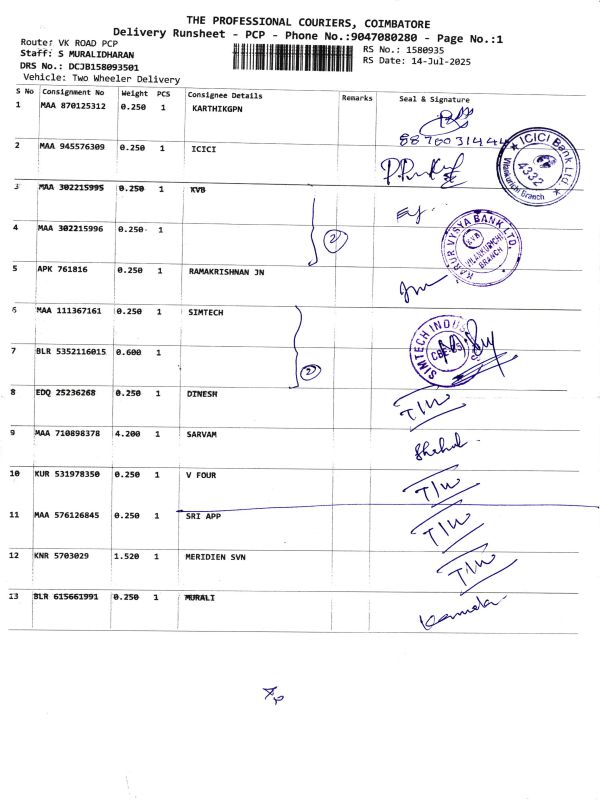 THE PROFESSIONAL COURIERS, COIMBATORE
Delivery Runsheet - PCP - Phone No.:9047080280 - Page No.:1
Route: VK ROAD PCP
RS No.: 1580935
Staff: S MURALIDHARAN
RS Date: 14-Jul-2025
DRS No.: DCJB158093501
Vehicle: Two Wheeler Delivery
S No Consignment No Weight PCS Consignee Details Remarks Seal & Signature
1 MAA 870125312 0.250 1 KARTHIKGPN
2 MAA 945576309 0.250 1 ICICI
ICICI Bank Ltd.
4332
Vilankurichi Branch
3 MAA 302215995 0.250 1 KVB
4 MAA 302215996 0.250 1
2
KARUR VYSYA BANK LTD.
KVB
VILANKURICHI
BRANCH
5 APK 761816 0.250 1 RAMAKRISHNAN JN
6 MAA 111367161 0.250 1 SIMTECH
SIMTECH INDUS
7 BLR 5352116015 0.600 1
2
8 EDQ 25236268 0.250 1 DINESH T/W
9 MAA 710898378 4.200 1 SARVAM
10 KUR 531978350 0.250 1 V FOUR T/W
11 MAA 576126845 0.250 1 SRI APP T/W
12 KNR 5703029 1.520 1 MERIDIEN SVN T/W
13 BLR 615661991 0.250 1 MURALI